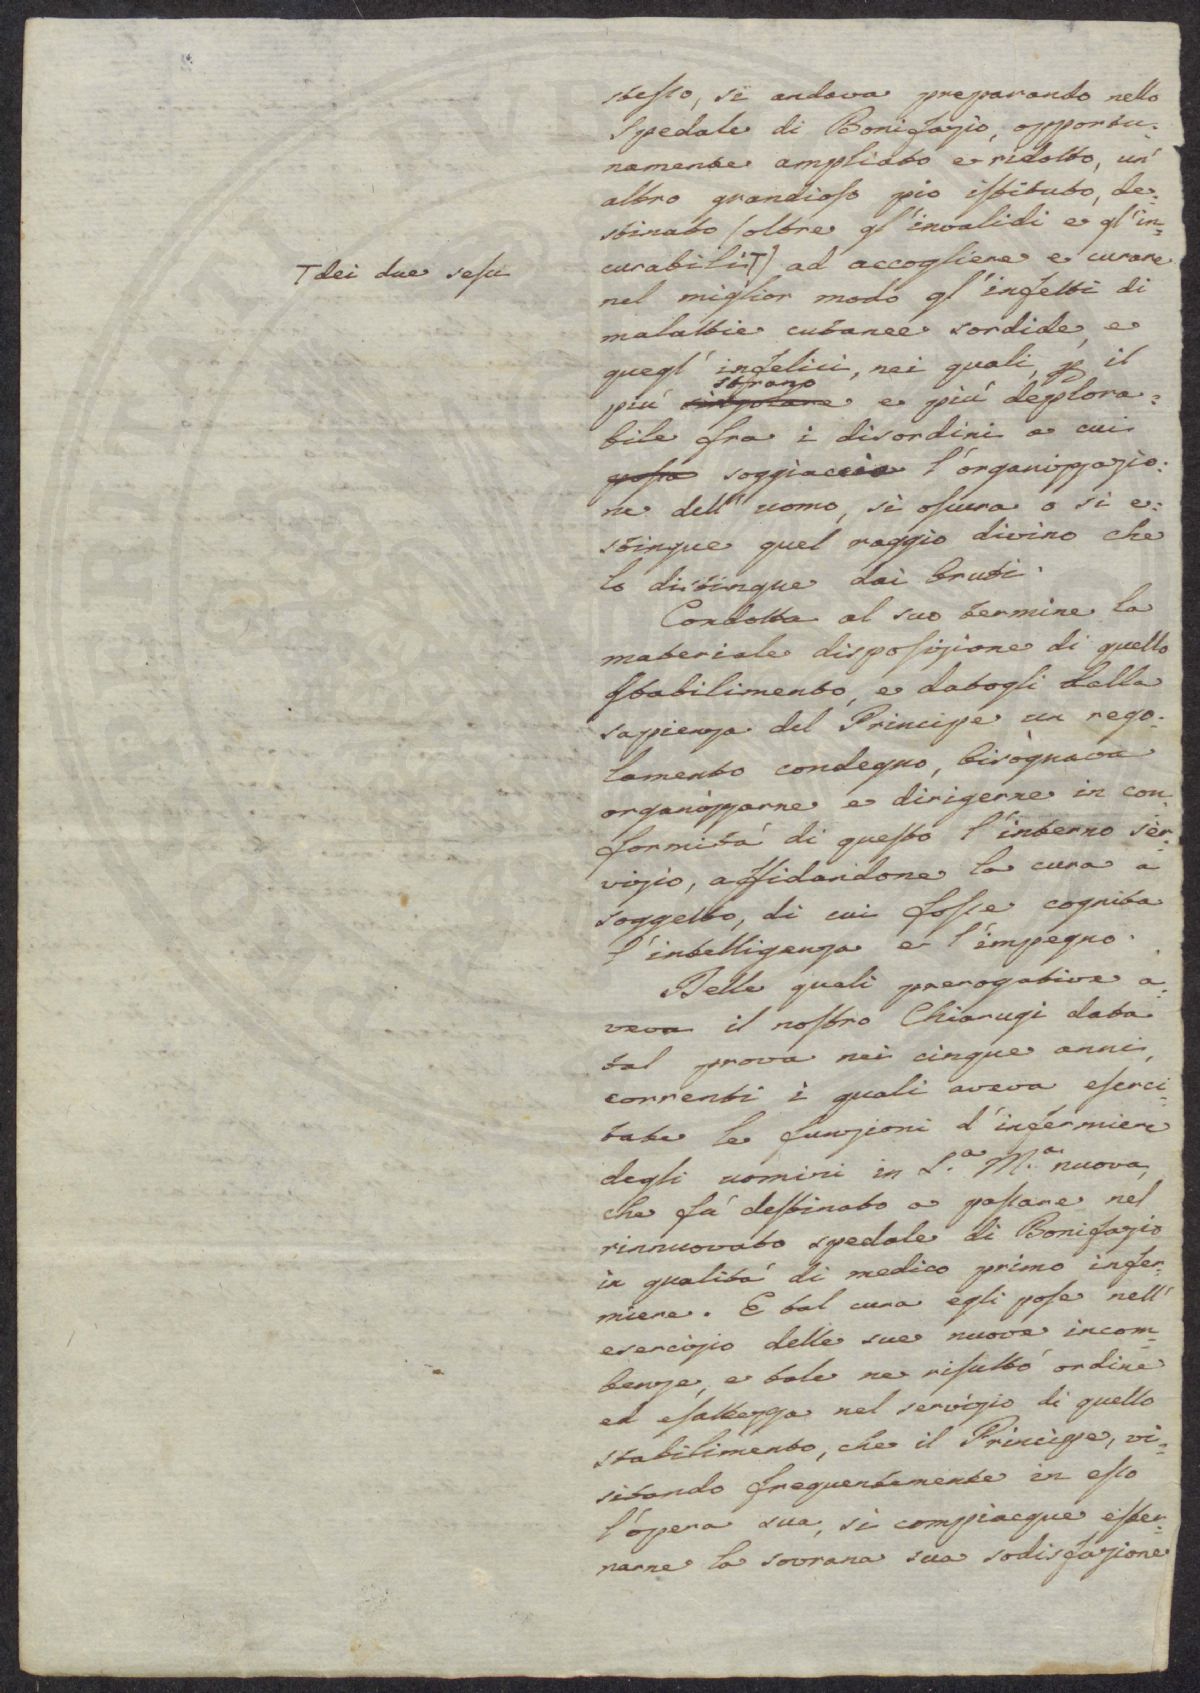 stesso, si andava preparando nello
Spedale di Bonifazio, opportu=
namente ampliato e ridotto, un'
altro grandioso pio istituto, de=
stinato (oltre gl'invalidi e gl'in=
curabili T) ad accogliere e curare
T dei due sessi
nel miglior modo gl'infetti di
malattie cutanee sordide, e
quegl'infelici, nei quali, p il
strano
più singolare e più deplora=
bile fra i disordini a cui
possa soggiaccia l'organizzazio=
ne dell'uomo, si oscura o si e=
stingue quel raggio divino che
lo distingue dai bruti.
Condotta al suo termine la
materiale disposizione di quello
stabilimento, e datogli dalla
sapienza del Principe un rego=
lamento condegno, bisognava
organizzarne e dirigerne in con=
formità di questo l'interno ser=
vizio, affidandone la cura a
soggetto, di cui fosse cognita
l'intelligenza e l'impegno.
Delle quali prerogative a=
veva il nostro Chiarugi data
tal prova nei cinque anni,
correnti i quali aveva eserci=
tate le funzioni d'infermiere
degli uomini in S.a M.a nuova,
che fù destinato a passare nel
rinnuovato spedale di Bonifazio
in qualità di medico primo infer=
miere. E tal cura egli pose nell'
esercizio delle sue nuove incom=
benze, e tale ne risultò ordine
ed esattezza nel servizio di quello
stabilimento, che il Principe, vi=
sitando frequentemente in esso
l'opera sua, si compiacque ester=
narne la sovrana sua sodisfazione